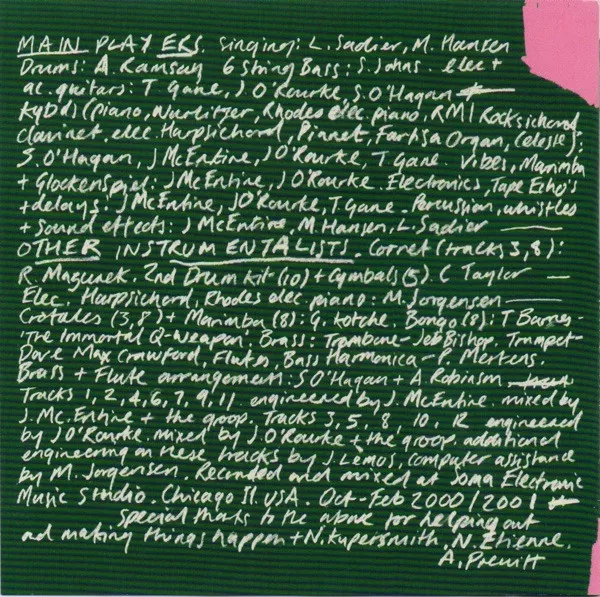 MAIN PLAYERS. Singing: L. Sadier, M. Hansen
Drums: A. Ramsay 6 String Bass: S. Johns. elec +
ac. guitars: T. Gane, J O'Rourke, S. O'Hagan
Kybds (piano, Wurlitzer, Rhodes elec. piano, RMI Rocksichord
clavinet. elec. Harpsichord, Pianet, Farfisa Organ, Celeste):
S. O'Hagan, J McEntire, J O'Rourke, T. Gane. Vibes, Marimba
+ Glockenspiel: J McEntire, J O'Rourke. Electronics, Tape Echo's
+ delays: J McEntire, J O'Rourke, T Gane. Percussion, whistles
+ sound effects: J McEntire, M. Hansen, L. Sadier
OTHER INSTRUMENTALISTS. Cornet (tracks 3, 8):
R Mazurek. 2nd Drum kit (10) + Cymbals (5). C Taylor
Elec. Harpsichord, Rhodes elec. piano: M. Jorgensen
Crotales (3,8) + Marimba (8): G. Kotche. Bongo (8): T Barnes -
'The Immortal Q-Weapon, Brass: Trombone - Jeb Bishop. Trumpet -
Dave Max Crawford, Flutes, Bass Harmonica - P. Mertens.
Brass + Flute arrangements: S O'Hagan + A Robinson
Tracks 1, 2, 4, 6, 7, 9, 11 engineered by J. McEntire. mixed by
J. McEntire + the groop. Tracks 3, 5, 8, 10, 12 engineered
by J O'Rourke. mixed by J. O'Rourke + the groop. additional
engineering on these tracks by J. Lemos, computer assistance
by M. Jorgensen. Recorded and mixed at Soma Electronic
Music Studio. Chicago Il. USA. Oct-Feb 2000/2001
special thanks to the above for helping out
and making things happen + N. Kupersmith, N. Etienne.
A. Prewitt